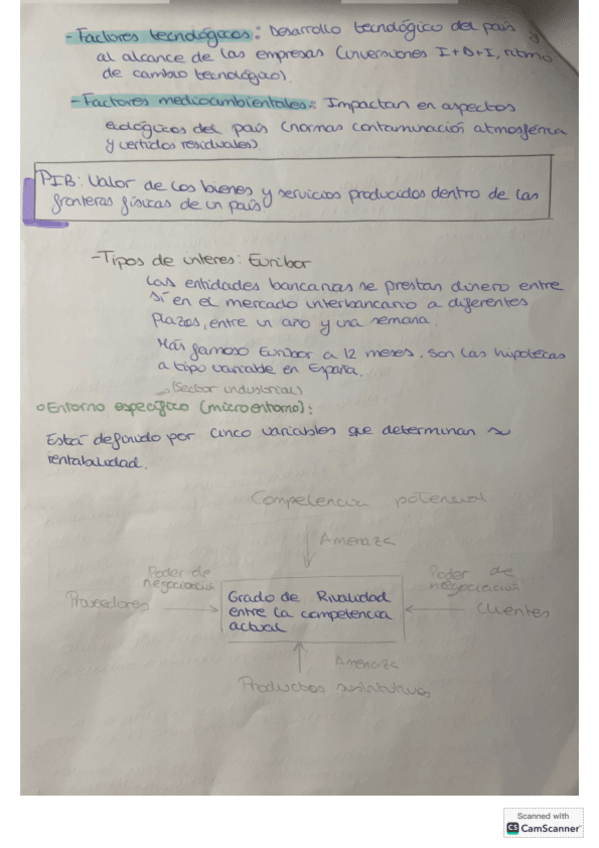 - Factores tecnológicos: Desarrollo tecnológico del país y
al alcance de las empresas (inversiones I+D+I, ritmo
de cambio tecnológico).
- Factores medioambientales: Impactan en aspectos
ecológicos del país (normas contaminación atmosférica
y vertidos residuales)
PIB: Valor de los bienes y servicios producidos dentro de las
fronteras físicas de un país
- Tipos de interes: Euribor
Las entidades bancarias se prestan dinero entre
sí en el mercado interbancario a diferentes
plazos, entre un año y una semana.
Más famoso Euribor a 12 meses, son las hipotecas
a tipo variable en España.
(Sector industrial)
o Entorno específico (microentorno):
Está definido por cinco variables que determinan su
rentabilidad.
Competencia potencial
Amenaza
Poder de
negociación
Proveedores
Grado de Rivalidad
entre la competencia
actual
Poder de
negociación
Clientes
Amenaza
Productos sustitutivos
Scanned with
CS CamScanner